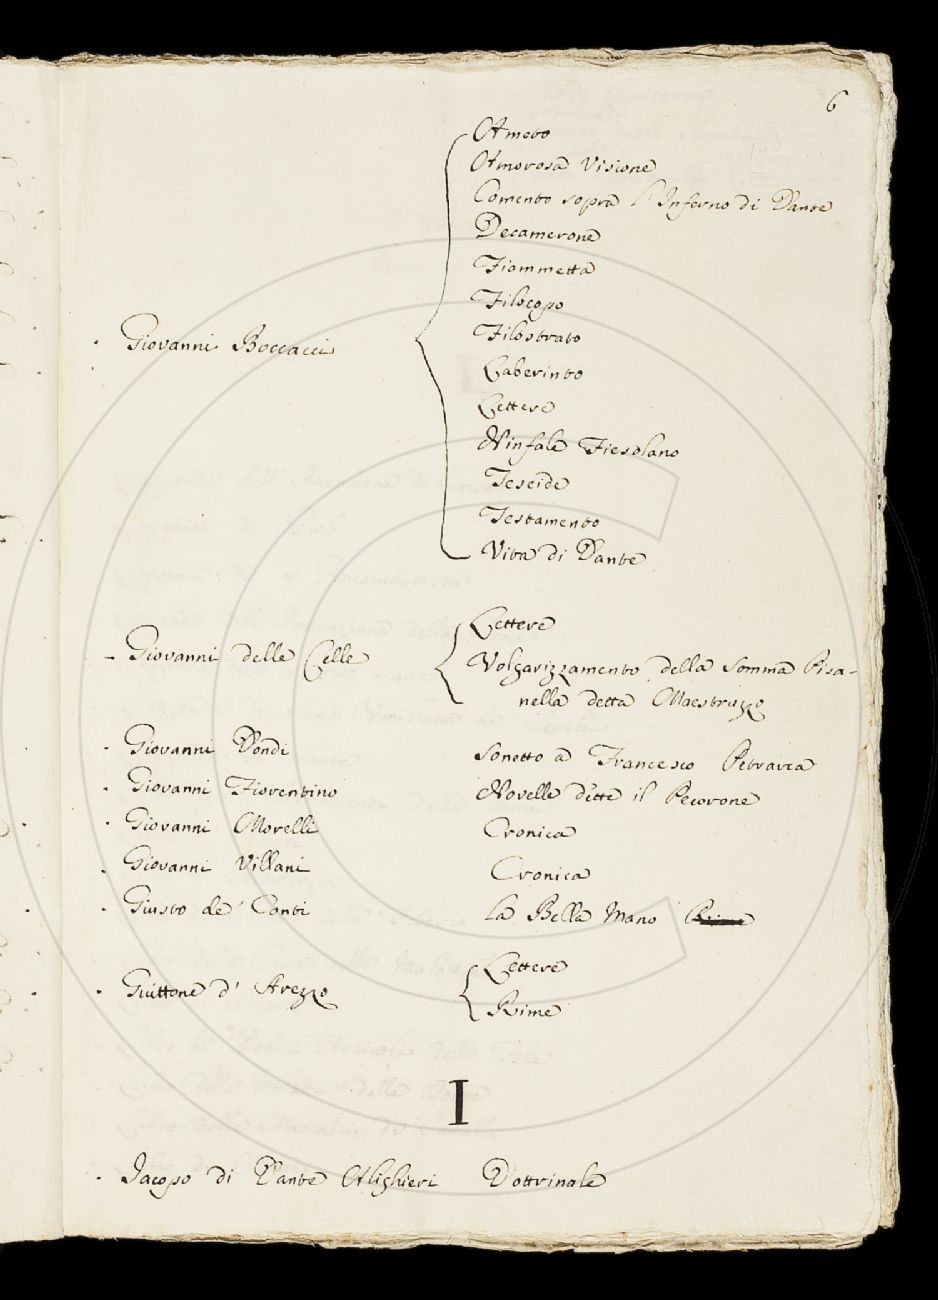 6
Ameto
Amorosa Visione
Comento sopra l'Inferno di Dante
Decamerone
Fiammetta
Filocopo
Filostrato
Giovanni Boccacci
Laberinto
Lettere
Ninfale Fiesolano
Teseide
Testamento
Vita di Dante
Lettere
Giovanni delle Celle
Volgarizzamento della Somma Pisa-
nella detta Maestruzzo
Giovanni Dondi Sonetto a Francesco Petrarca
Giovanni Fiorentino Novelle dette il Pecorone
Giovanni Morelli Cronica
Giovanni Villani Cronica
Giusto de' Conti La Bella Mano
Lettere
Guittone d' Arezzo
Rime
I
Jacopo di Dante Alighieri Dottrinale